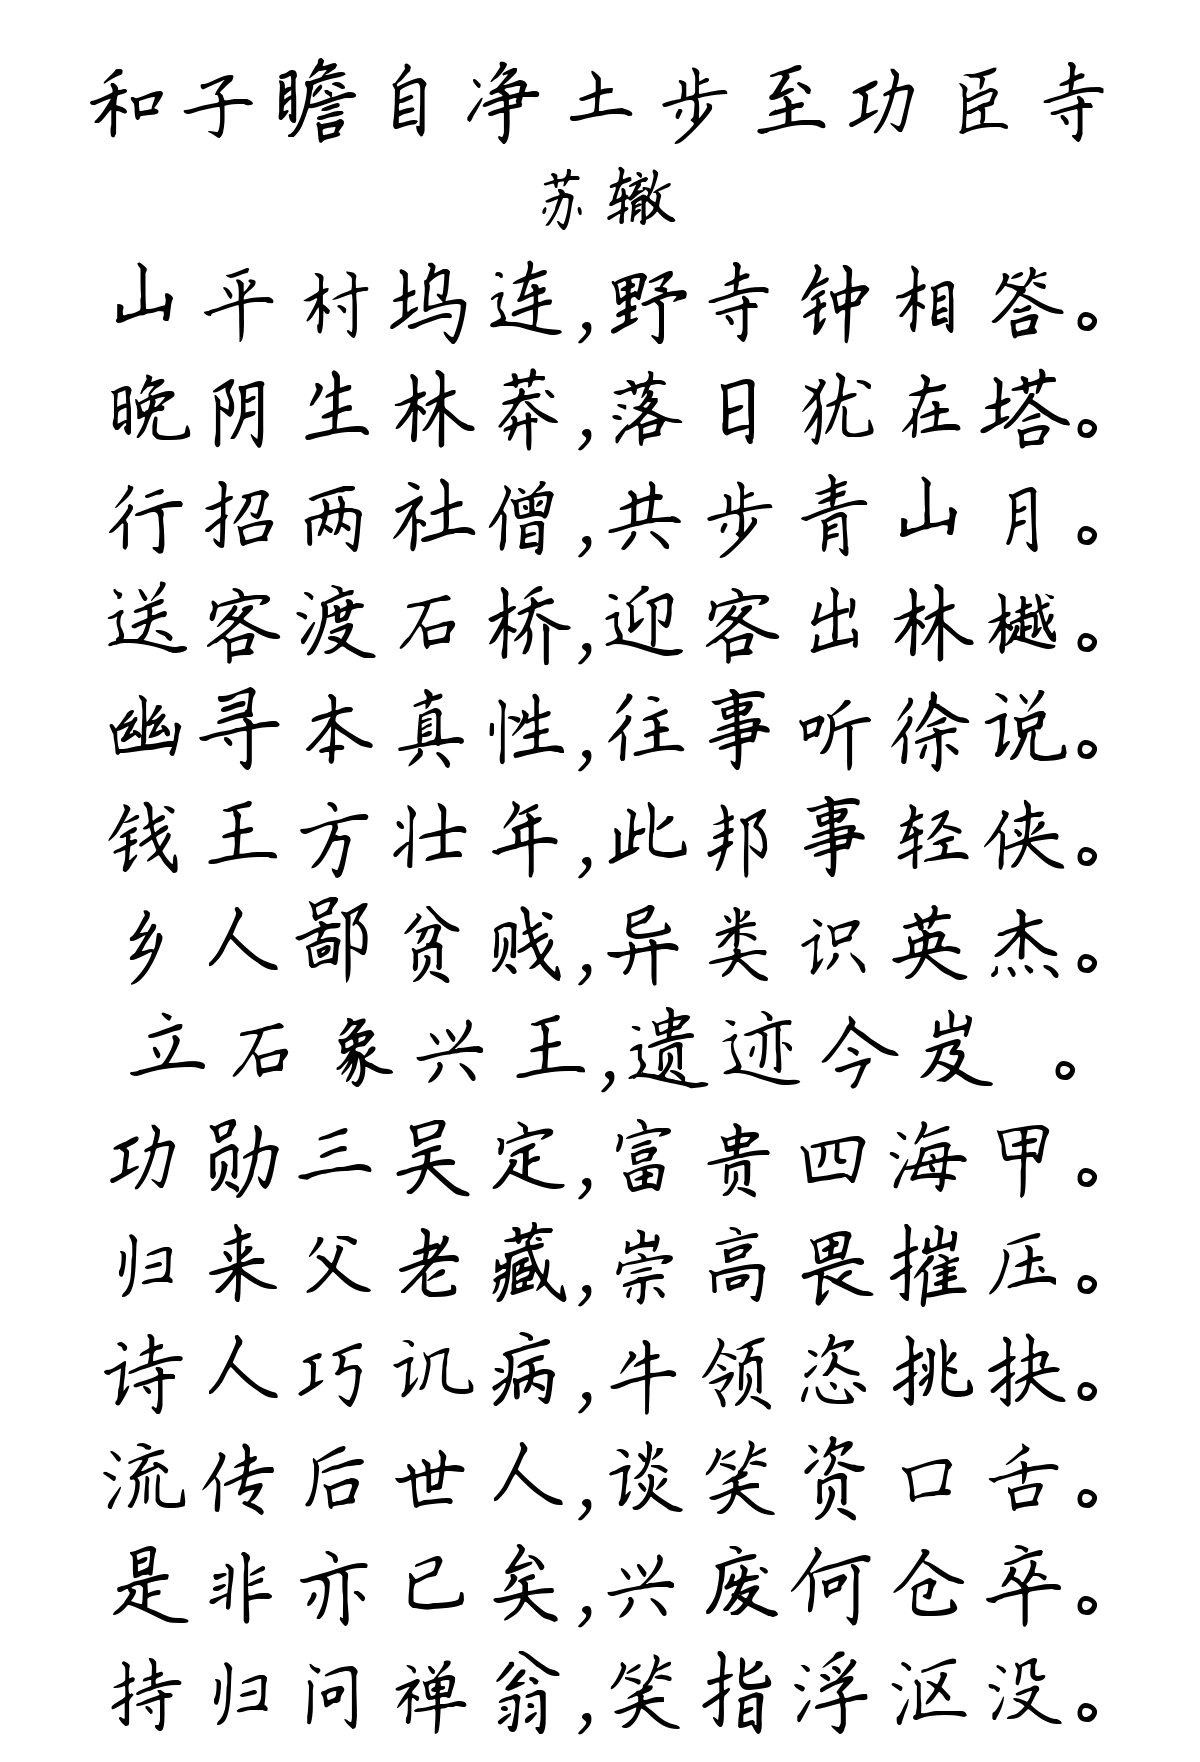 和子瞻自净土步至功臣寺
苏辙
山平村坞连,野寺钟相答。
晚阴生林莽,落日犹在塔。
行招两社僧,共步青山月。
送客渡石桥,迎客出林樾。
幽寻本真性,往事听徐说。
钱王方壮年,此邦事轻侠。
乡人鄙贫贱,异类识英杰。
立石象兴王,遗迹今岌 。
功勋三吴定,富贵四海甲。
归来父老藏,崇高畏摧压。
诗人巧讥病,牛领恣挑抉。
流传后世人,谈笑资口舌。
是非亦已矣,兴废何仓卒。
持归问禅翁,笑指浮沤没。